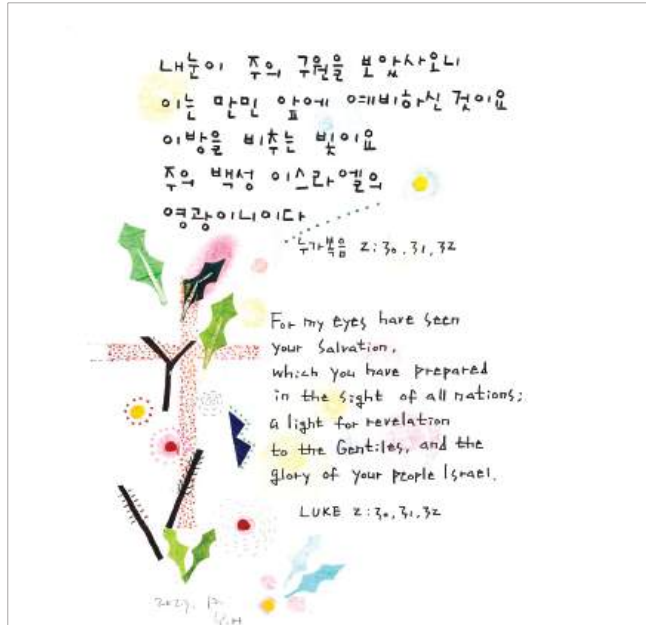 내눈이 주의 구원을 보았사오니
이는 만민 앞에 예비하신 것이요
이방을 비추는 빛이요
주의 백성 이스라엘의
영광이니이다
누가복음 2:30,31,32
For my eyes have seen
your salvation,
which you have prepared
in the sight of all nations;
a light for revelation
to the Gentiles, and the
glory of your people Israel.
LUKE 2:30,31,32